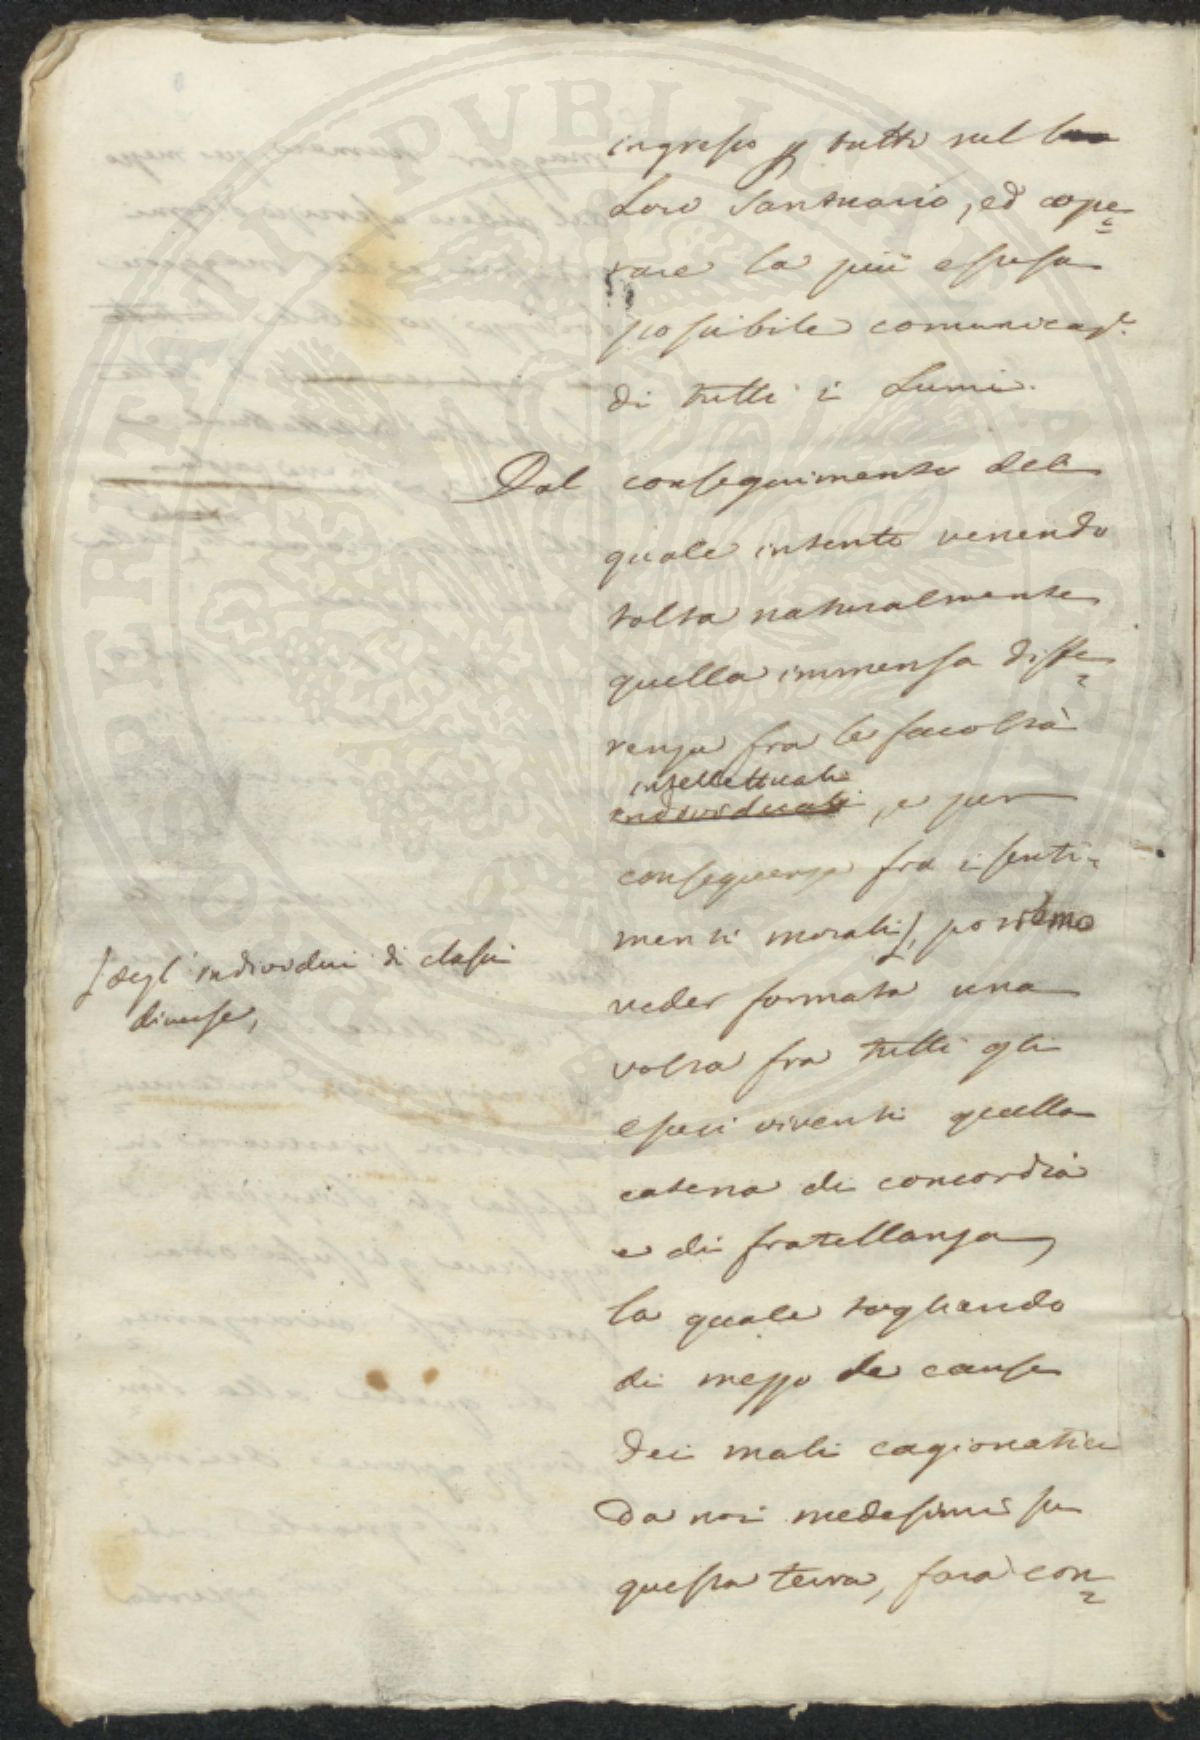 ingresso p tutti nel
Loro Santuario, ed ope=
rare la più estesa
possibile comunicaze.
di tutti i Lumi.
Dal conseguimento del
quale intento venendo
tolta naturalmente
quella immensa diffe=
renza fra le facoltà
intellettuali
individuali, e per
conseguenza fra i senti=
menti morali, potremo
[degl' individui di classi
diverse,
veder formata una
volta fra tutti gli
esseri viventi quella
catena di concordia
e di fratellanza,
la quale togliendo
di mezzo le cause
dei mali cagionatici
da noi medesimi su
questa terra, farà con=
PROSPERITATI PVBLICAE AVGENDAE